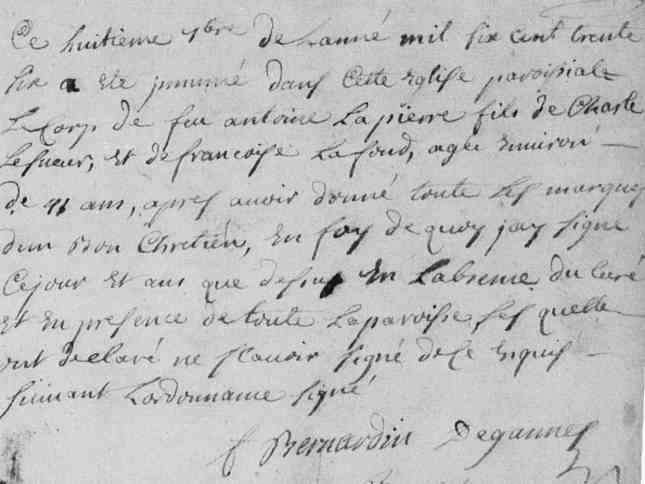 Ce huitieme 7bre de Lanné mil six cent trente
six a ete jnnumé dans Cette Eglise paroissiale
Le Corps de feu antoine Lapierre fils de Charle
Lesueur, et de francoise Lafond, agée Environ
de 41 ans, apres auoir donné toute ses marques
dun Bon Chretien, En foy de quoy jay signé
Ce jour Et ans que dessus En Labsence du Curé
Et En presence de toute La paroisse, Les quelle
ont declaré ne scauoir signé de Ce Enquis
suiuant Lordonname signé
f Bernardin Degannes